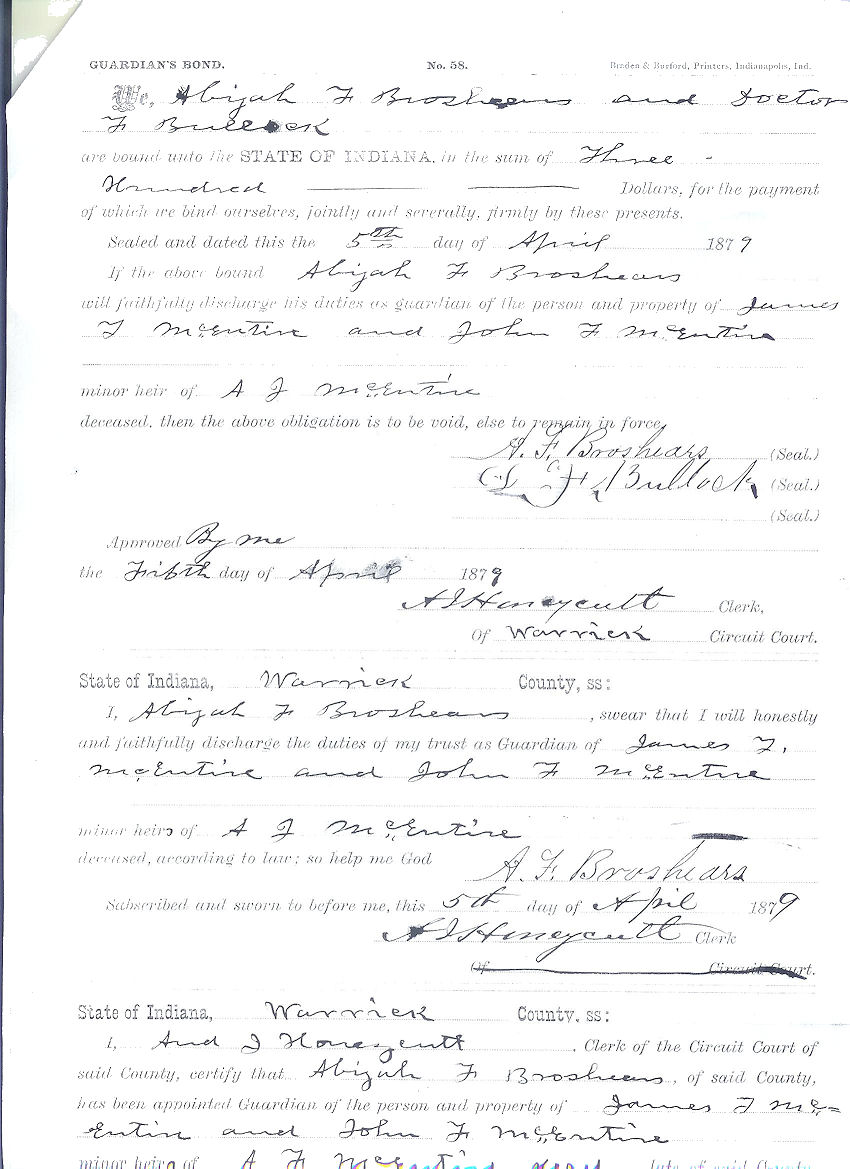 GUARDIAN'S BOND. No. 58. Braden & Burford, Printers, Indianapolis, Ind.
We, Abijah F Broshears and Doctor
F Bullock
are bound unto the STATE OF INDIANA, in the sum of Three -
Hundred Dollars, for the payment
of which we bind ourselves, jointly and severally, firmly by these presents.
Sealed and dated this the 5th day of April 1879
If the above bound Abijah F Broshears
will faithfully discharge his duties as guardian of the person and property of James
T McEntire and John F McEntire
minor heir of A J McEntire
deceased, then the above obligation is to be void, else to remain in force.
A. F. Broshears (Seal.)
D F Bullock (Seal.)
(Seal.)
Approved By me
the Fifth day of April 1879
A J Honeycutt Clerk,
Of Warrick Circuit Court.
State of Indiana, Warrick County, ss:
I, Abijah F Broshears, swear that I will honestly
and faithfully discharge the duties of my trust as Guardian of James T,
McEntire and John F McEntire
minor heirs of A J McEntire
deceased, according to law; so help me God
A. F. Broshears
Subscribed and sworn to before me, this 5th day of April 1879
A J Honeycutt Clerk
Of Circuit Court.
State of Indiana, Warrick County, ss:
I, And J Honeycutt, Clerk of the Circuit Court of
said County, certify that Abijah F Broshears, of said County,
has been appointed Guardian of the person and property of James T Mc=
Entire and John F McEntire
minor heirs of A J McEntire late of said County